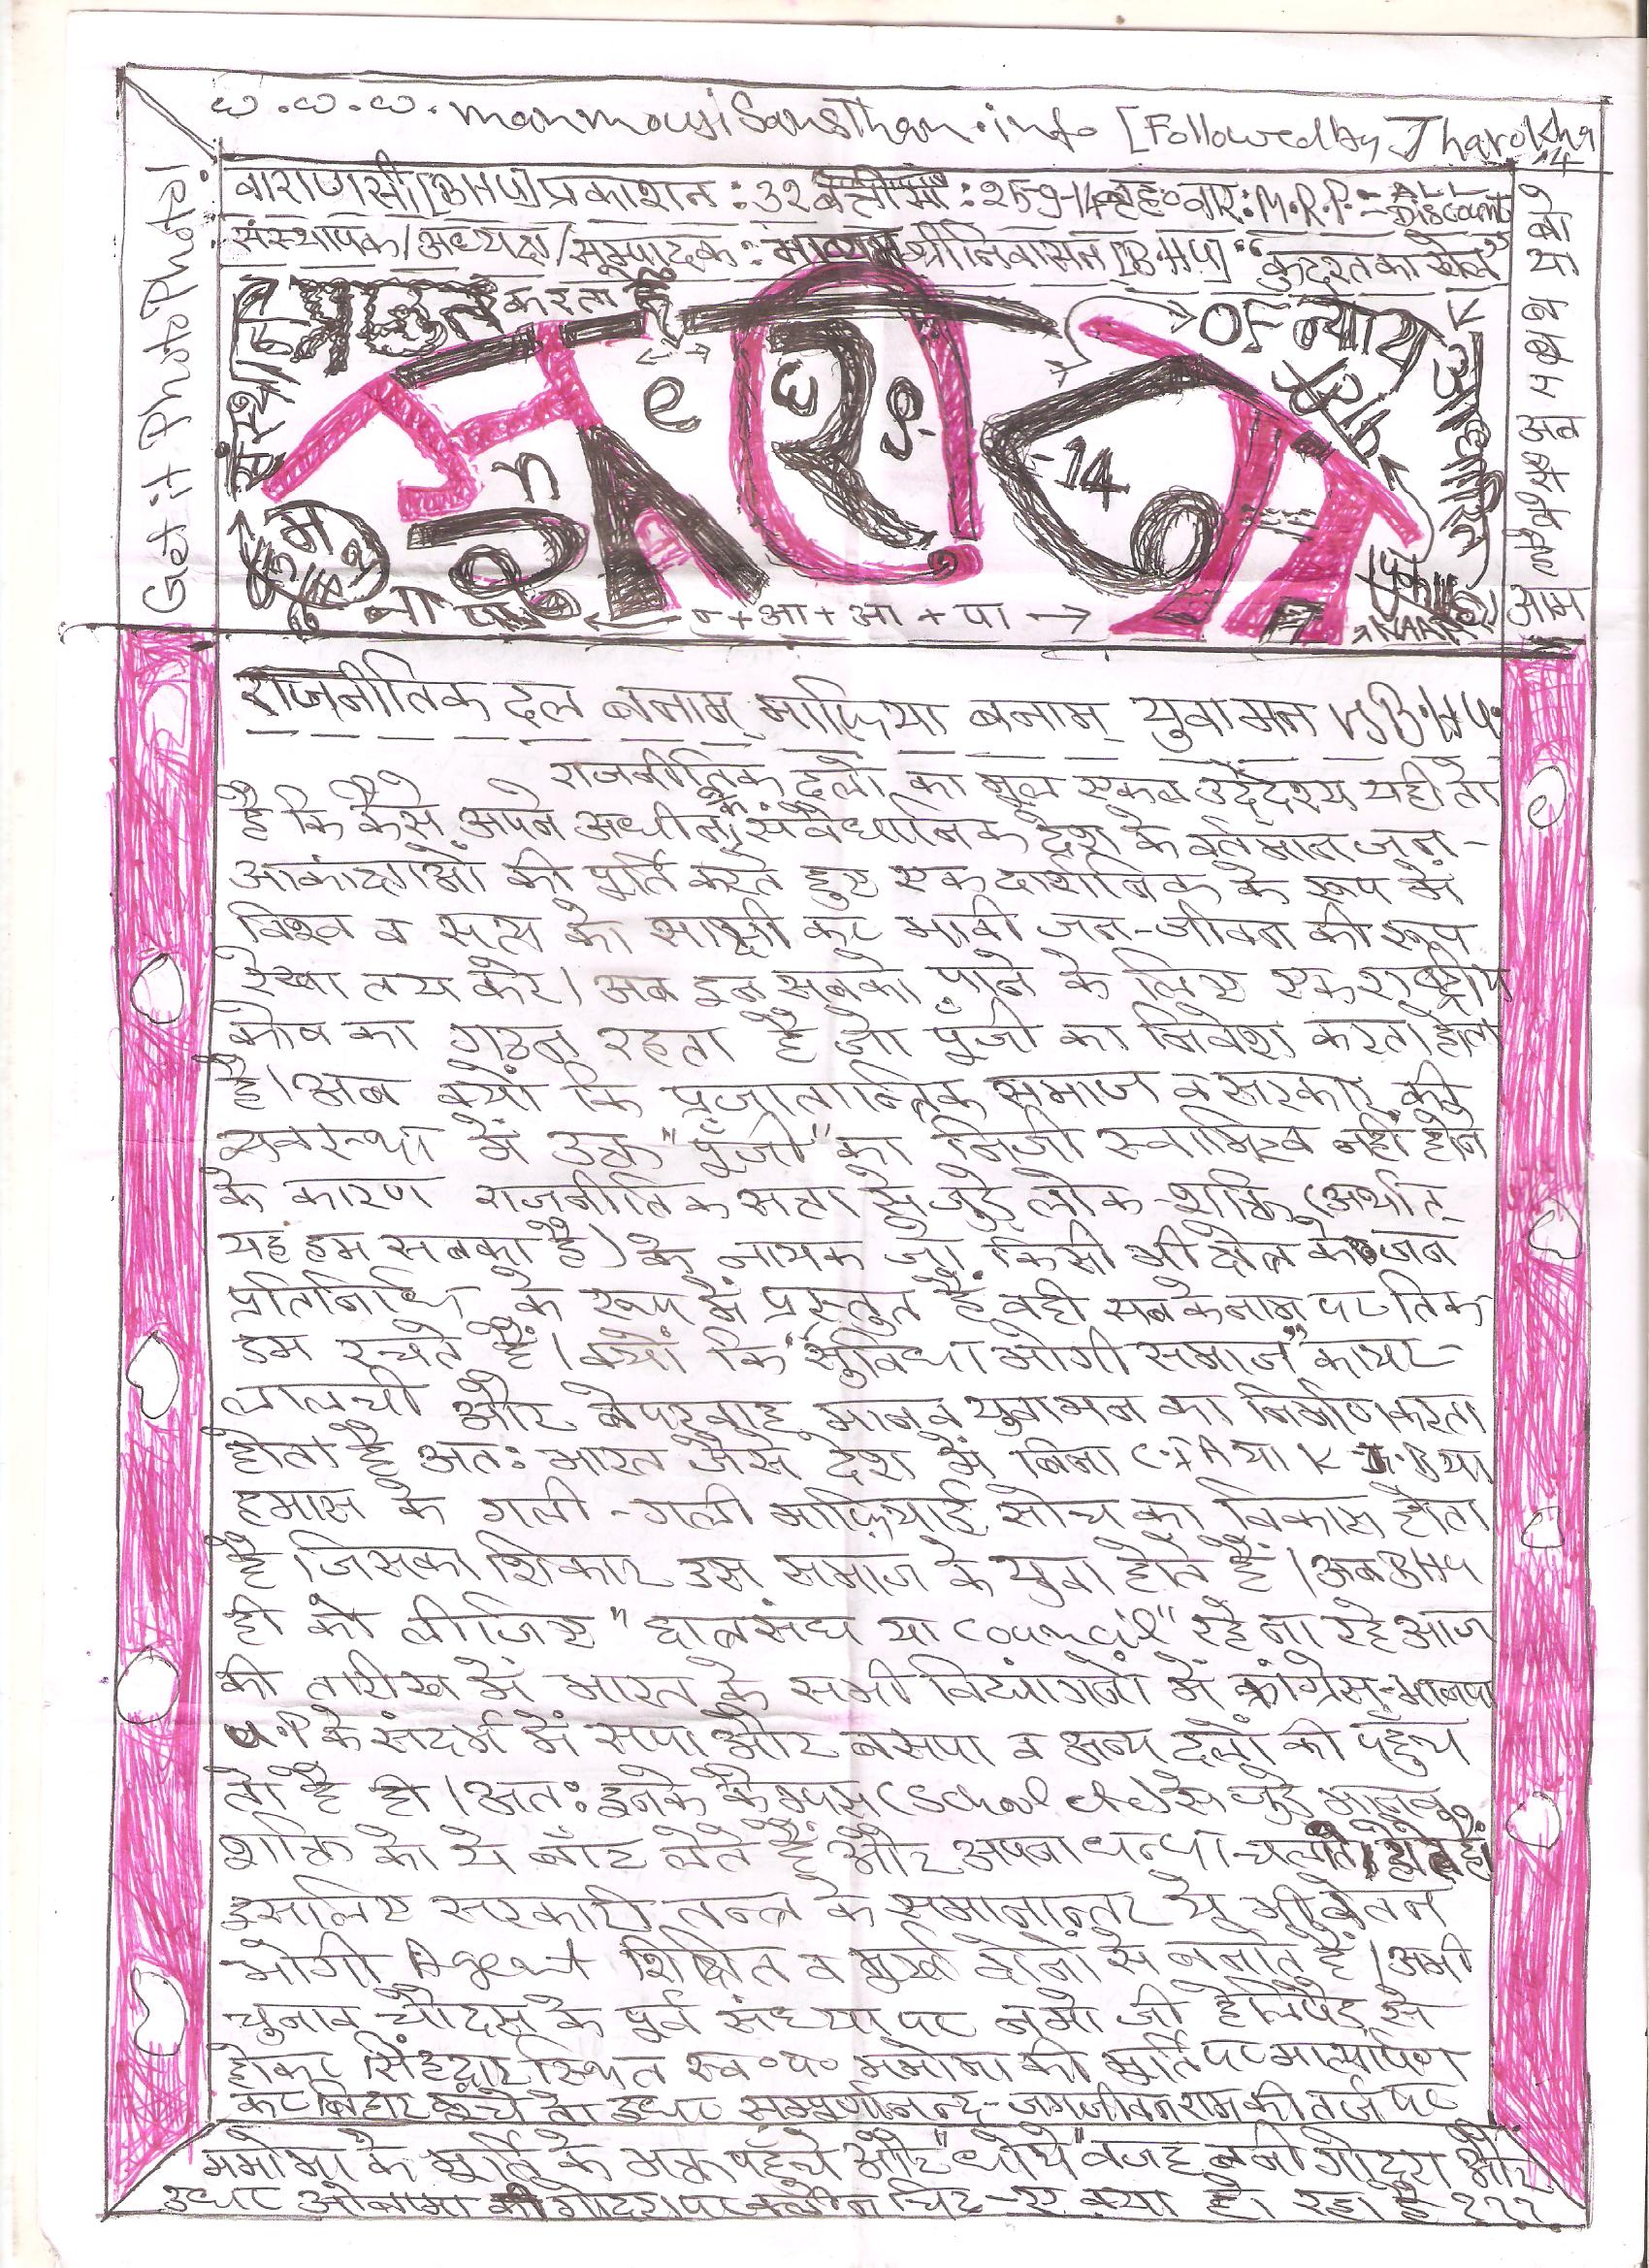 w.w.w.manmoujiSansthan.info [Followed by Jharokha
Get it Photo Photo!
वाराणसी[BHU]प्रकाशन:32बत्तीसी:25-9-14बृह०वार:M.R.P.=ALL Discount
संस्थापक/अध्यक्ष/सम्पादक: श्रीनिवासन[BHU]:"कुदरत का खेल"
करता है
OF न्याय
e
n
-14
न+आ+आ+पा
आम
राजनीतिक दल बनाम् माफिया बनाम् युवामन VSB.H.U.
राजनीतिक दलों का मूल एकल उद्देश्य यही तो
है कि कैसे अपने अधीन के संवैधानिक देश के वर्तमान जन-
आकांक्षाओं की पूर्ति करते हुए एक दार्शनिक के रूप में
विश्व व सत्य को साक्षी कर भावी जन-जीवन की रूप
रेखा तय करे। अब इन सबको पाने के लिए एक राष्ट्रीय
कोष का गठन रहता है जो पूँजी का निवेश करता होता
है। अब क्यों कि प्रजातान्त्रिक समाज व सरकार की
व्यवस्था में उक्त "पूँजी" का निजी स्वामित्व नहीं होने
के कारण राजनीतिक सत्ता से जुड़े लोक-शक्ति (अर्थात्
यह हम सबका है) के नायक जो किसी भी दल के जन
प्रतिनिधि के रूप में प्रस्तुत हैं वही सबके नाम पर तिक
ड़म रचते हैं। क्यों कि "सुविधा भोगी समाज" कायर-
लालची और बेपरवाह मानव युवामन का निर्माण करता
होता है अतः भारत जैसे देश में बिना C.I.A या K.G.B या
हमास के गली-गली माफियाई सोच का विकास होता
है जिसका शिकार उस समाज के युवा होते हैं। अब BHU
ही को लीजिए "छात्रसंघ या Council" रहे ना रहे आज
की तारीख में भारत के सभी विद्यांगनों में कांग्रेस-भाजपा
U.P के संदर्भ में सपा और बसपा व अन्य दलों की पहुँच
तो है ही। अतः इनके कैम्पस (School etc) से जुड़े मानव
शक्ति को ये बाँट लेते हैं और अपना धन्धा चलाते
इसलिए सरकारी तन्त्र के समानान्तर ये भी वेतन
भोगी Agent शिक्षित व मूर्ख दोनों से बनाते हैं। अभी
चुनाव चौदस के पूर्व संध्या पर नमो जी हेलिपैड से
होकर सिंहद्वार स्थित स्व०पं० ममोमा की मूर्ति पर माल्यार्पण
कर बिहार कूँचे तो उधर सम्पूर्णानन्द-जगजीवन राम की तर्ज पर
ममोमा के मूर्ति के भक्त पहुँचे और "धोये" वजह बनी गोदरा और
उधर ओबामा की गोदरा पर क्लीन चिट-ए क्या हो रहा है???